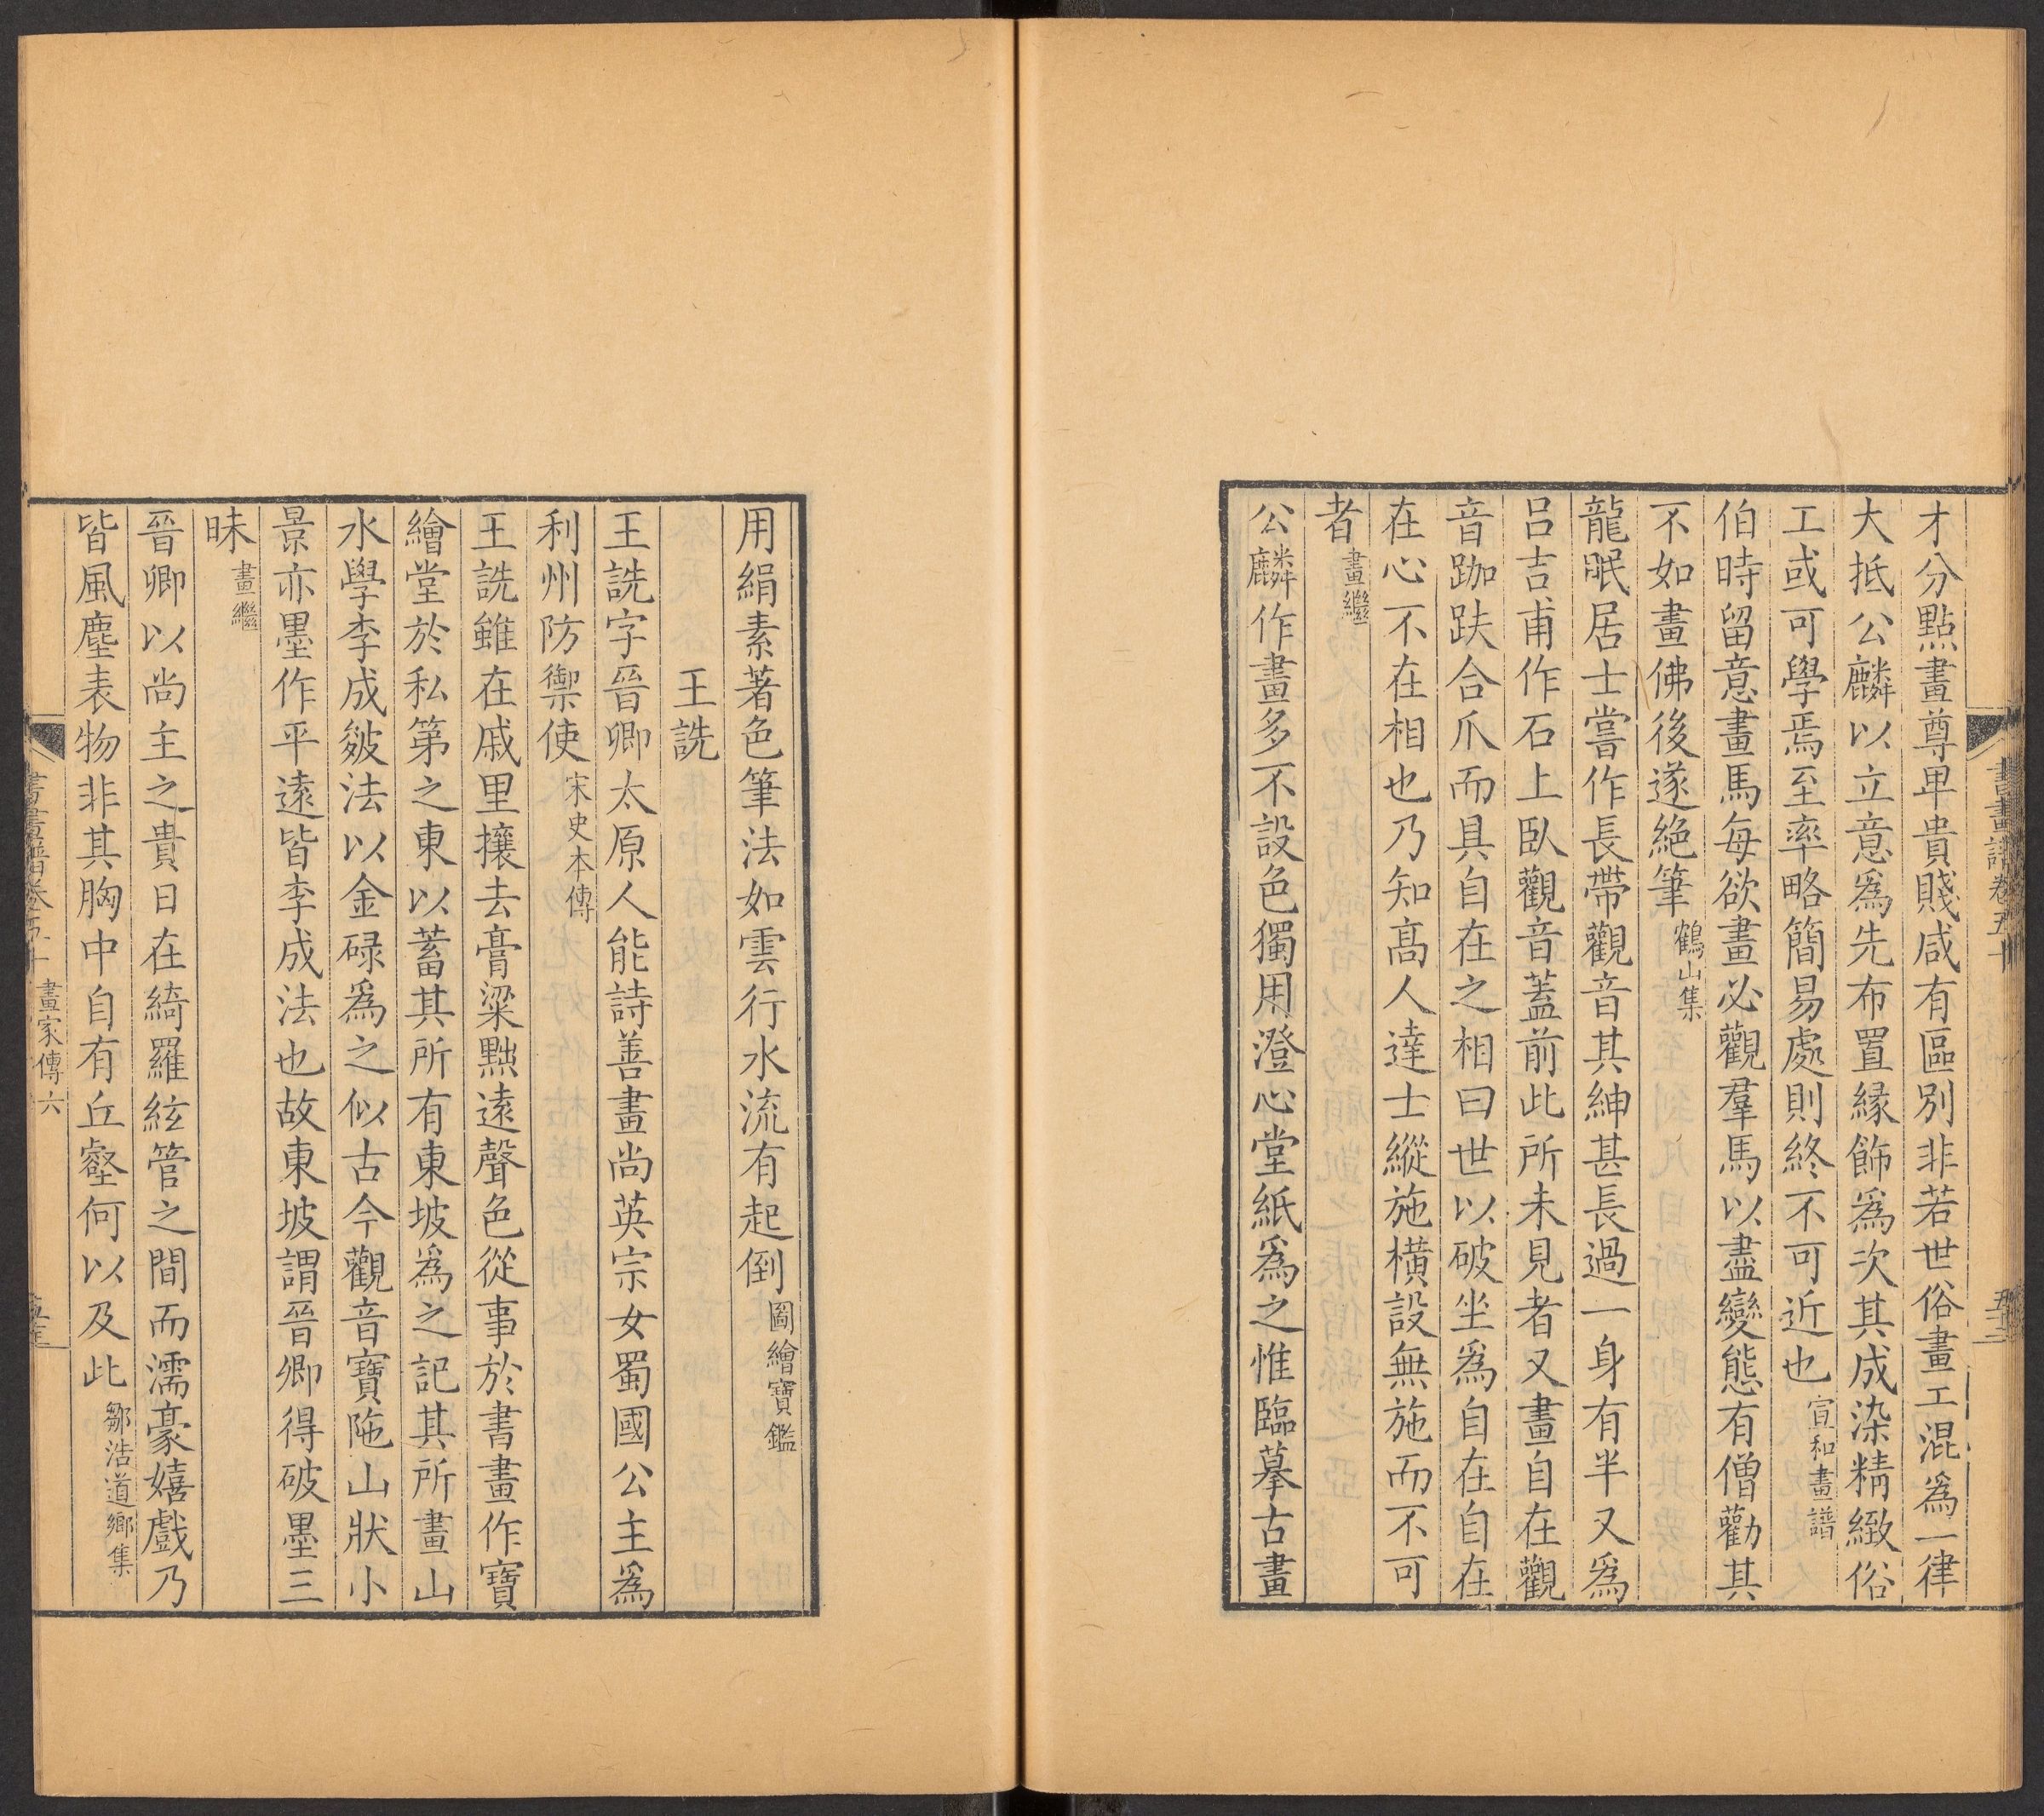 書畫譜卷五十
才分點畫尊卑貴賤咸有區別非若世俗畫工混爲一律
大抵公麟以立意爲先布置緣飾爲次其成染精緻俗
工或可學焉至率略簡易處則終不可近也宣和畫譜
伯時留意畫馬每欲畫必觀羣馬以盡變態有僧勸其
不如畫佛後遂絕筆鶴山集
龍眠居士嘗作長帶觀音其紳甚長過一身有半又爲
呂吉甫作石上臥觀音蓋前此所未見者又畫自在觀
音跏趺合爪而具自在之相曰世以破坐爲自在自在
在心不在相也乃知髙人達士縱施橫設無施而不可
者畫繼
公麟作畫多不設色獨用澄心堂紙爲之惟臨摹古畫
用絹素著色筆法如雲行水流有起倒圖繪寶鑑
王詵
王詵字晉卿太原人能詩善畫尚英宗女蜀國公主爲
利州防禦使宋史本傳
王詵雖在戚里攘去膏粱黜遠聲色從事於書畫作寶
繪堂於私第之東以蓄其所有東坡爲之記其所畫山
水學李成皴法以金碌爲之似古今觀音寶陁山狀小
景亦墨作平遠皆李成法也故東坡謂晉卿得破墨三
昧畫繼
晉卿以尚主之貴日在綺羅絃管之間而濡豪嬉戲乃
皆風塵表物非其胸中自有丘壑何以及此鄒浩道鄉集
書畫譜卷五十 畫家傳六